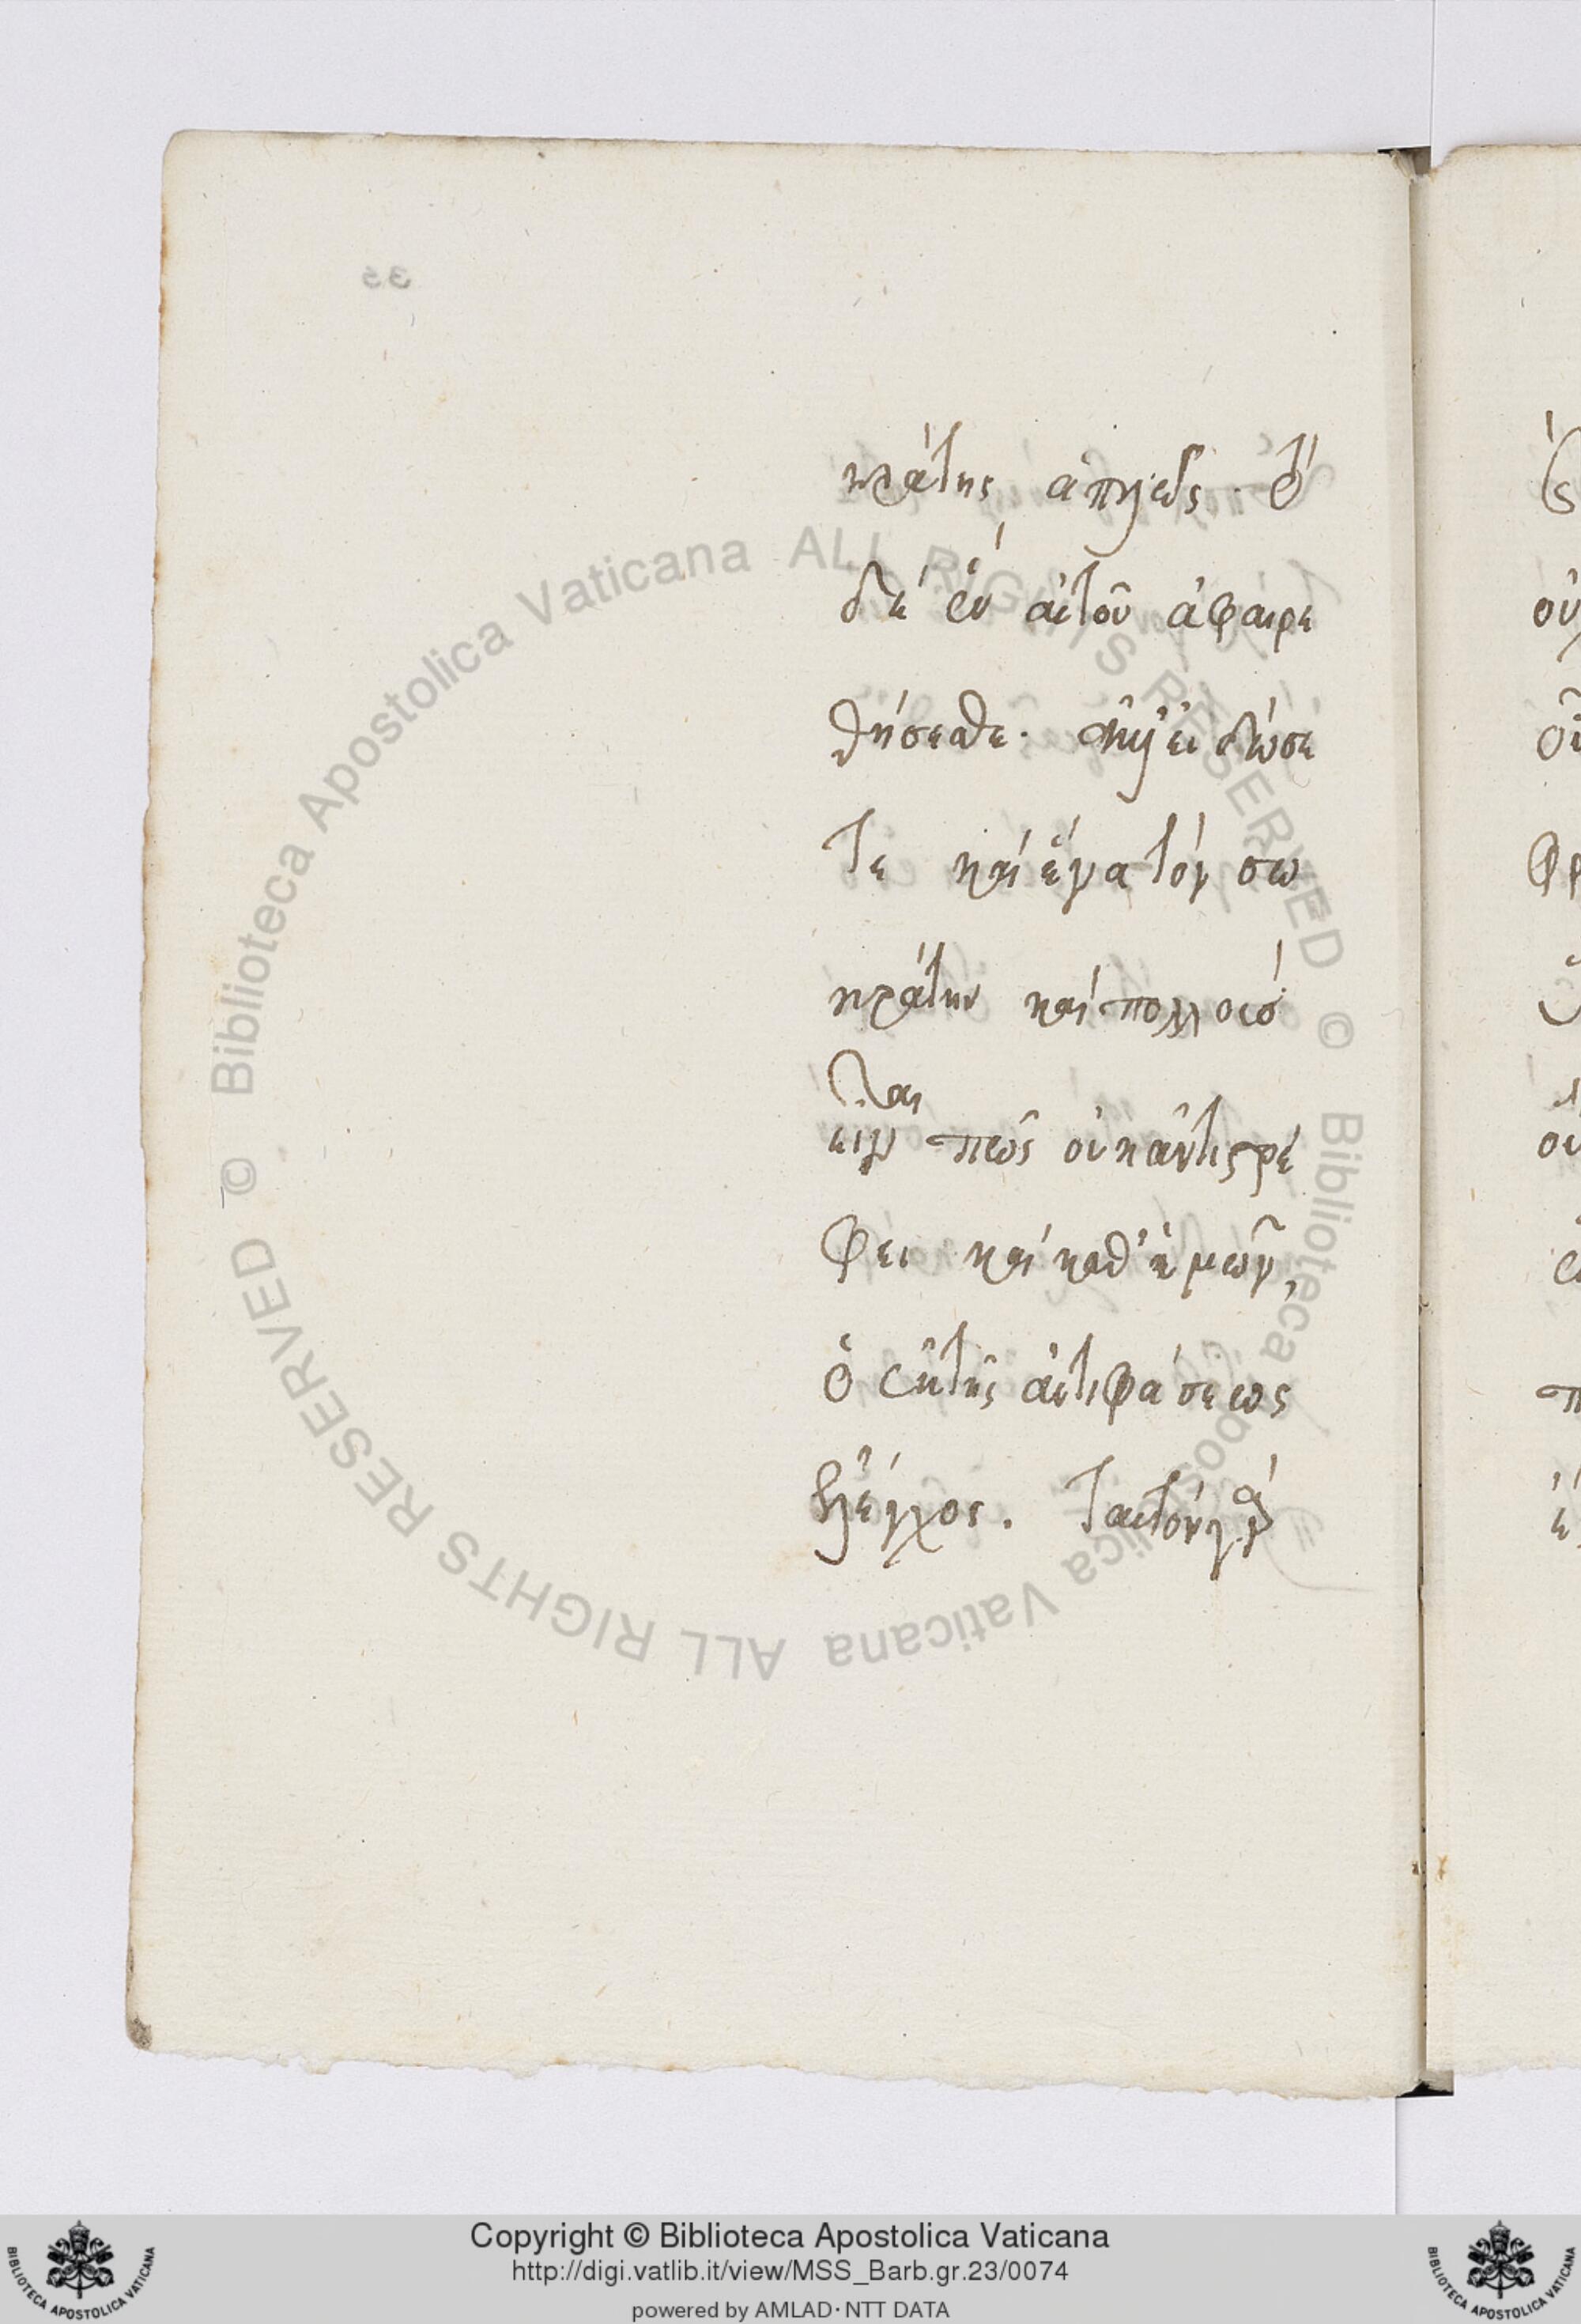 κράτης ἁπλῶς. τὸ
δὲ ἓν αὐτοῦ ἀφαιρε
θήσεσθε. ἀλλ' εἰ δώσε
τε καὶ ἕνα τὸν σω
κράτην καὶ πολλοὺς
εἶναι πῶς οὐκ ἀντιστρέ
φει καὶ καθ' ἡμῶν,
ὁ ἐκ τῆς ἀντιφάσεως
ἔλεγχος. ταυτὸν γὰρ
35
© Biblioteca Apostolica Vaticana ALL RIGHTS RESERVED
© Biblioteca Apostolica Vaticana ALL RIGHTS RESERVED
Copyright © Biblioteca Apostolica Vaticana
http://digi.vatlib.it/view/MSS_Barb.gr.23/0074
powered by AMLAD·NTT DATA
BIBLIOTECA APOSTOLICA VATICANA
BIBLIOTECA APOSTOLICA VATICANA